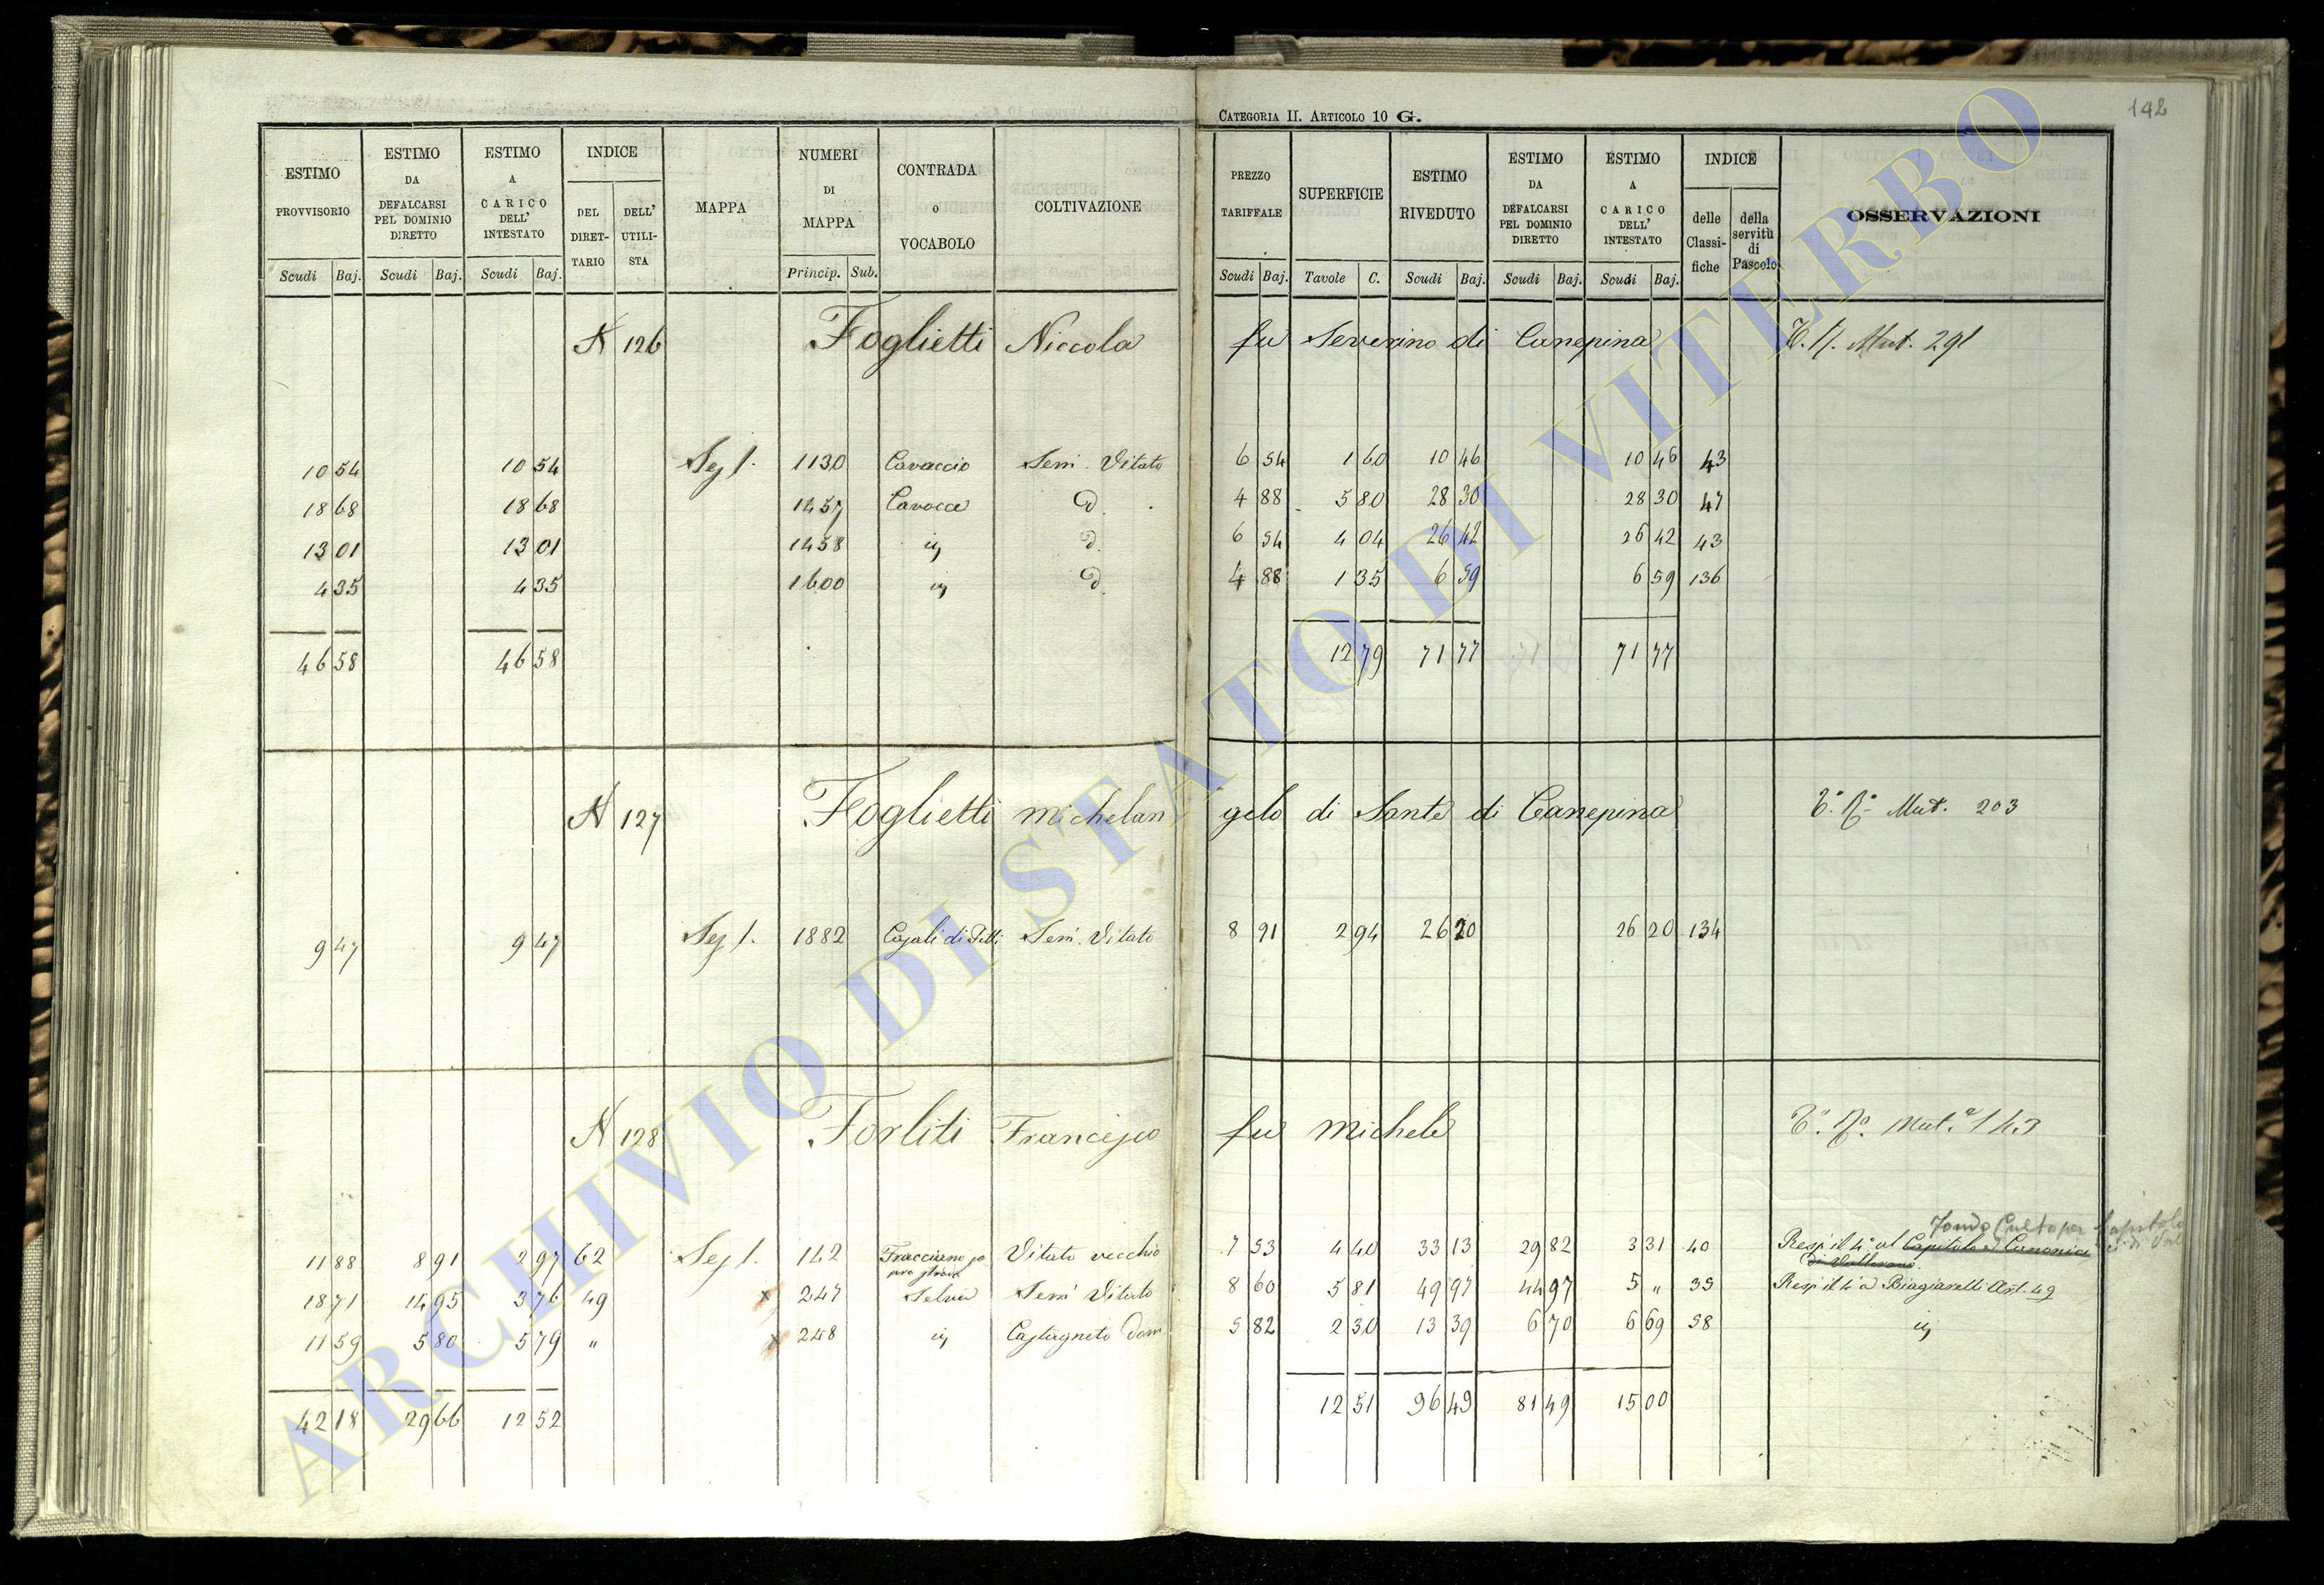 CATEGORIA II. ARTICOLO 10 G.
142
ESTIMO PROVVISORIO
ESTIMO DA DEFALCARSI PEL DOMINIO DIRETTO
ESTIMO A CARICO DELL' INTESTATO
INDICE
DEL DIRET- TARIO
DELL' UTILI- STA
MAPPA
NUMERI DI MAPPA
CONTRADA o VOCABOLO
COLTIVAZIONE
PREZZO TARIFFALE
SUPERFICIE
ESTIMO RIVEDUTO
ESTIMO DA DEFALCARSI PEL DOMINIO DIRETTO
ESTIMO A CARICO DELL' INTESTATO
INDICE
delle Classi- fiche
della servitù di Pascolo
OSSERVAZIONI
Scudi Baj. Scudi Baj. Scudi Baj. Princip. Sub. Scudi Baj. Tavole C. Scudi Baj. Scudi Baj. Scudi Baj.
N 126 Foglietti Niccola fu Severino di Canepina Mut. 291
10 54 10 54 Sez 1. 1130 Cavaccio Sem. Vitato 6 54 1 60 10 46 10 46 43
18 68 18 68 1457 Cavocce d. 4 88 5 80 28 30 28 30 47
13 01 13 01 1458 d. 6 54 4 04 26 42 26 42 43
4 35 4 35 1600 d. 4 88 1 35 6 59 6 59 136
46 58 46 58 12 79 71 77 71 77
N 127 Foglietti Michelan gelo di Sante di Canepina Mut. 203
9 47 9 47 Sez 1. 1882 Casali di Sem. Vitato 8 91 2 94 26 20 26 20 134
N 128 Forliti Francesco fu Michele Mut. 143
Fondo Culto per Capitolo
11 88 8 91 2 97 62 Sez 1. 142 Vitato vecchio 7 53 4 40 33 13 29 82 3 31 40 Resp. il 4° al Capitolo e Canonici
di Vallerano
18 71 14 95 3 76 49 x 247 Selva Sem Vitato 8 60 5 81 49 97 44 97 5 „ 39 Resp il 4° a Biagiarelli Art. 49
11 59 5 80 5 79 „ x 248 Castagneto Dom. 5 82 2 30 13 39 6 70 6 69 58
42 18 29 66 12 52 12 51 96 49 81 49 15 00
ARCHIVIO DI STATO DI VITERBO